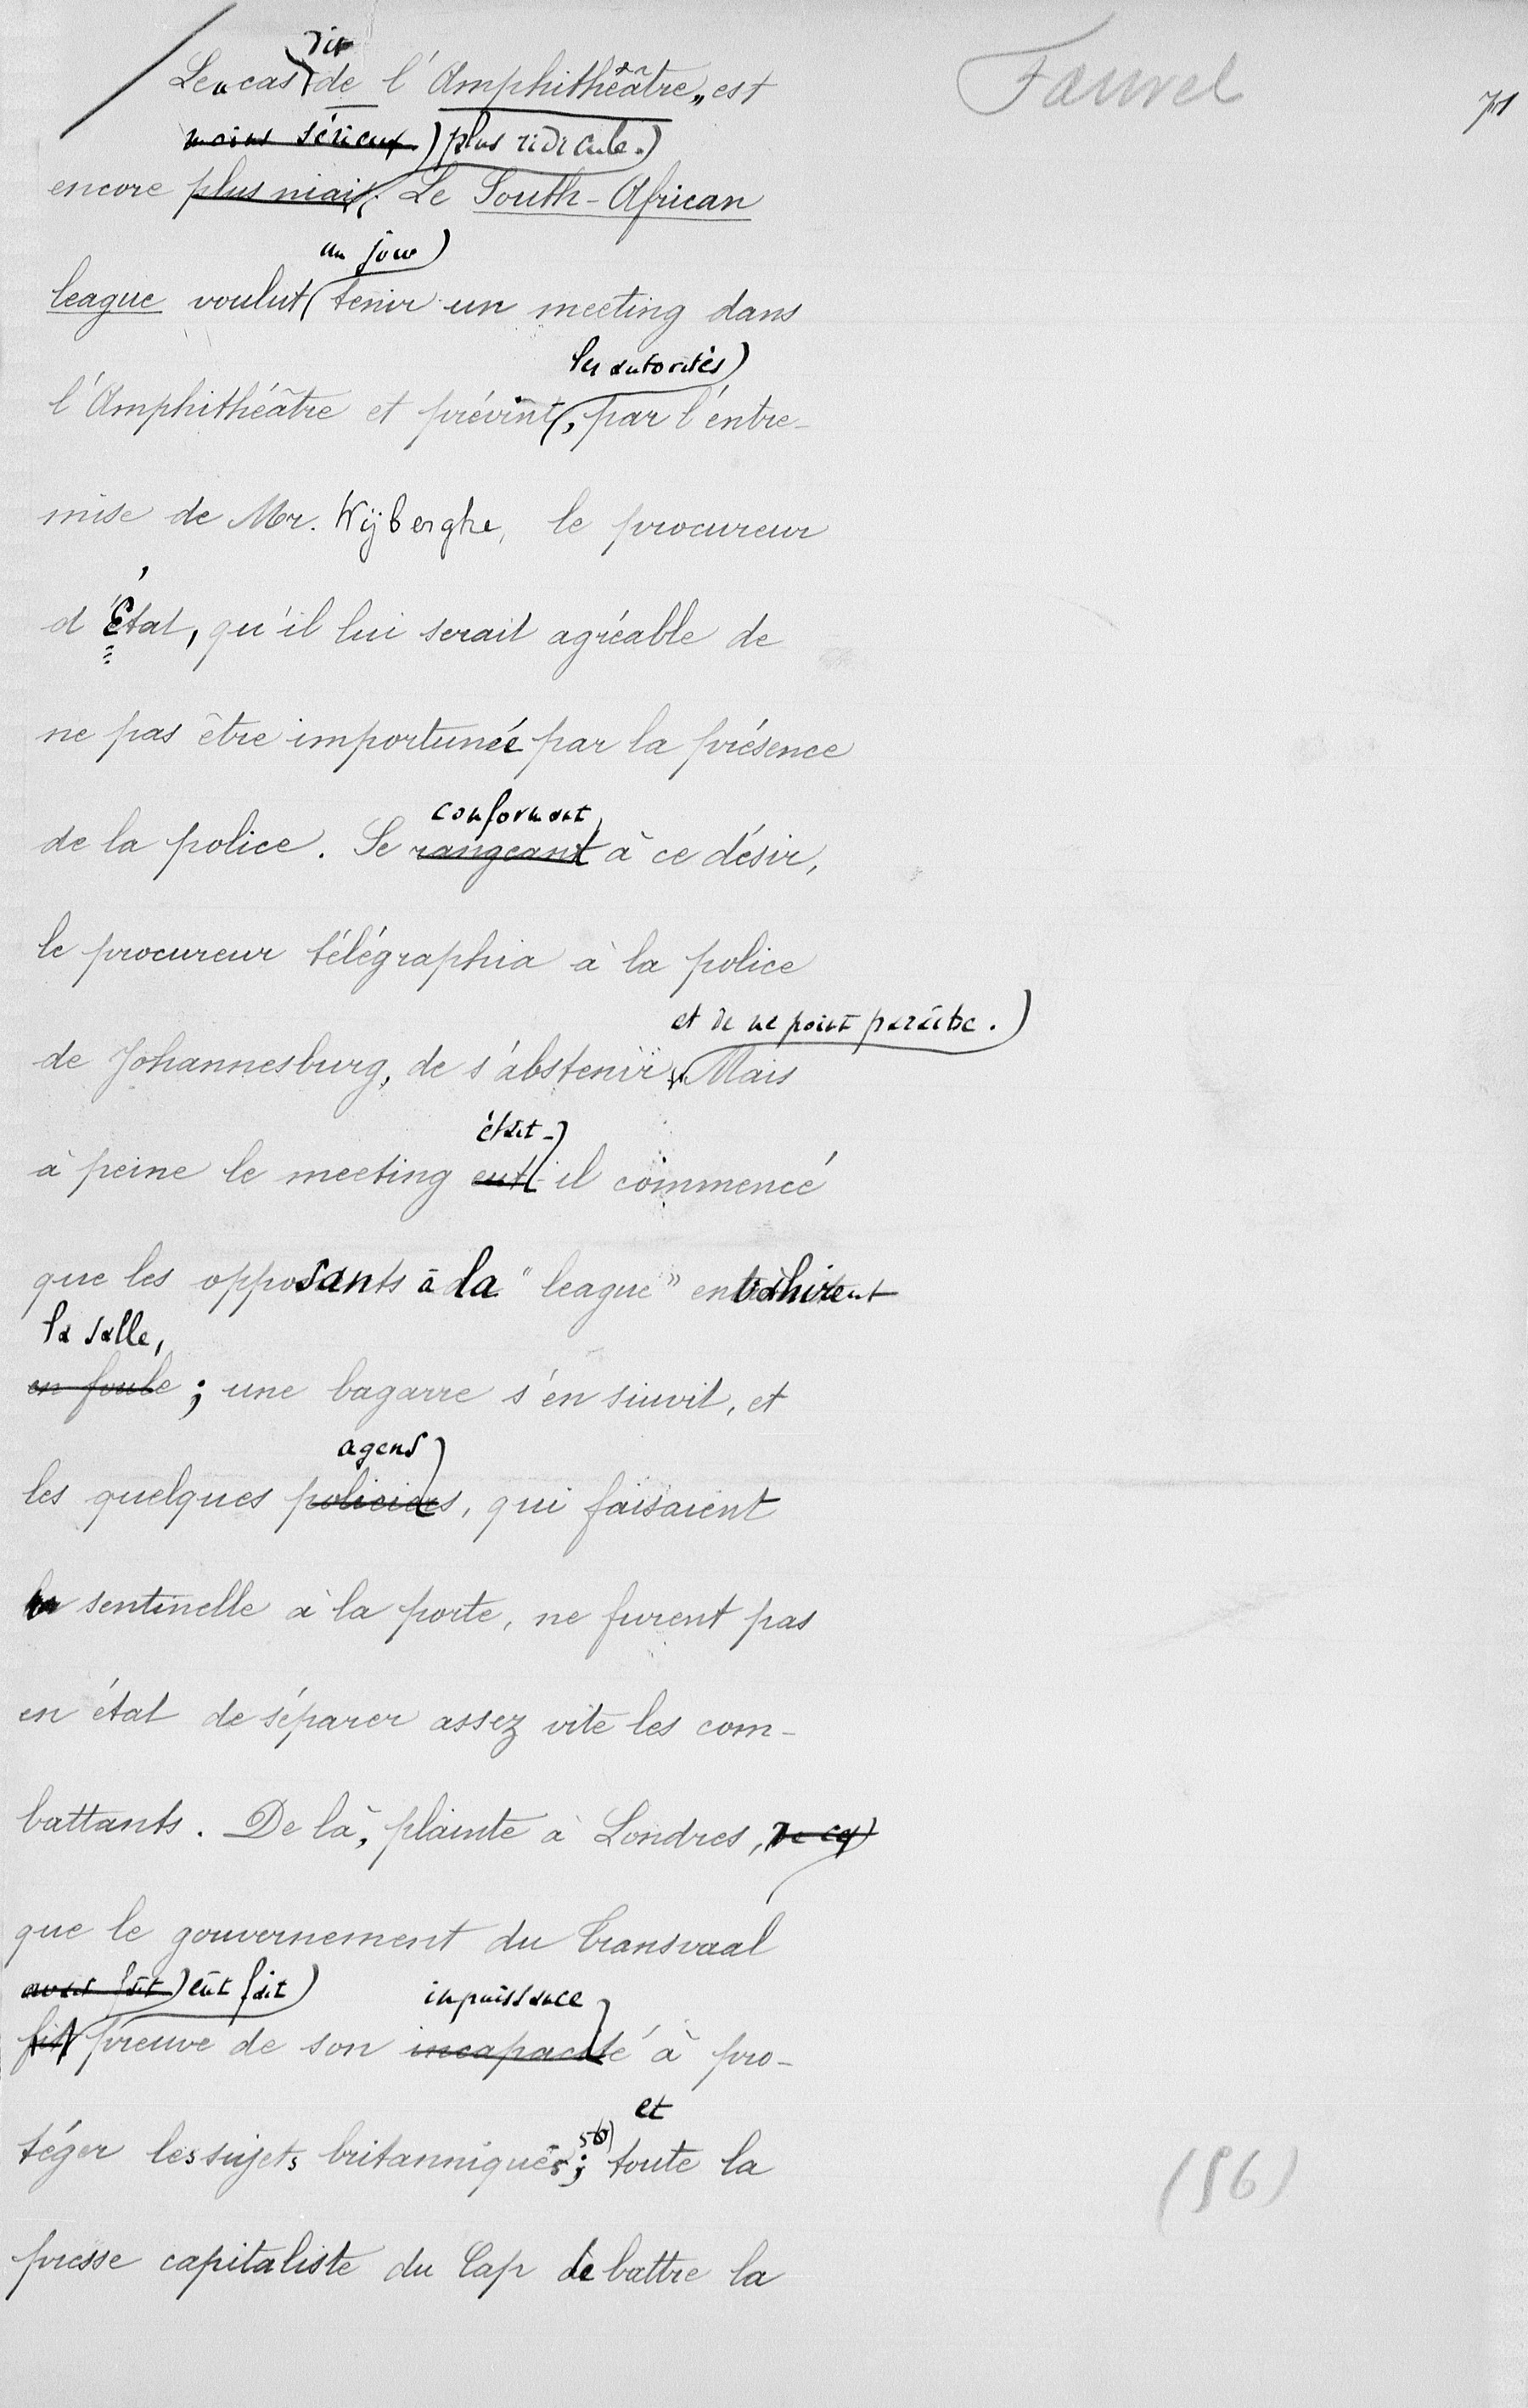 Fauvel
71
dit
Le "cas de l'Amphithéâtre" est
moins sérieux plus ridicule.
encore plus niais. Le South-African
un jour
league voulut tenir un meeting dans
les autorités
l'Amphithéâtre et prévint, par l'entre-
mise de Mr. Wijberghe, le procureur
d'État, qu'il lui serait agréable de
ne pas être importunée par la présence
conformant
de la police. Se rangeant à ce désir,
le procureur télégraphia à la police
et de ne point paraître.
de Johannesburg, de s'abstenir. Mais
était-
à peine le meeting eut-il commencé
que les opposants à la "league" envahirent
la salle,
en foule ; une bagarre s'en suivit, et
agens
les quelques policiers, qui faisaient
sentinelle à la porte, ne furent pas
en état de séparer assez vite les com-
battants. De là, plainte à Londres, de ce
que le gouvernement du Transvaal
avait fait eût fait impuissance
fit preuve de son incapacité à pro-
56) et
téger les sujets britanniques; toute la
(56)
presse capitaliste du Cap de battre la